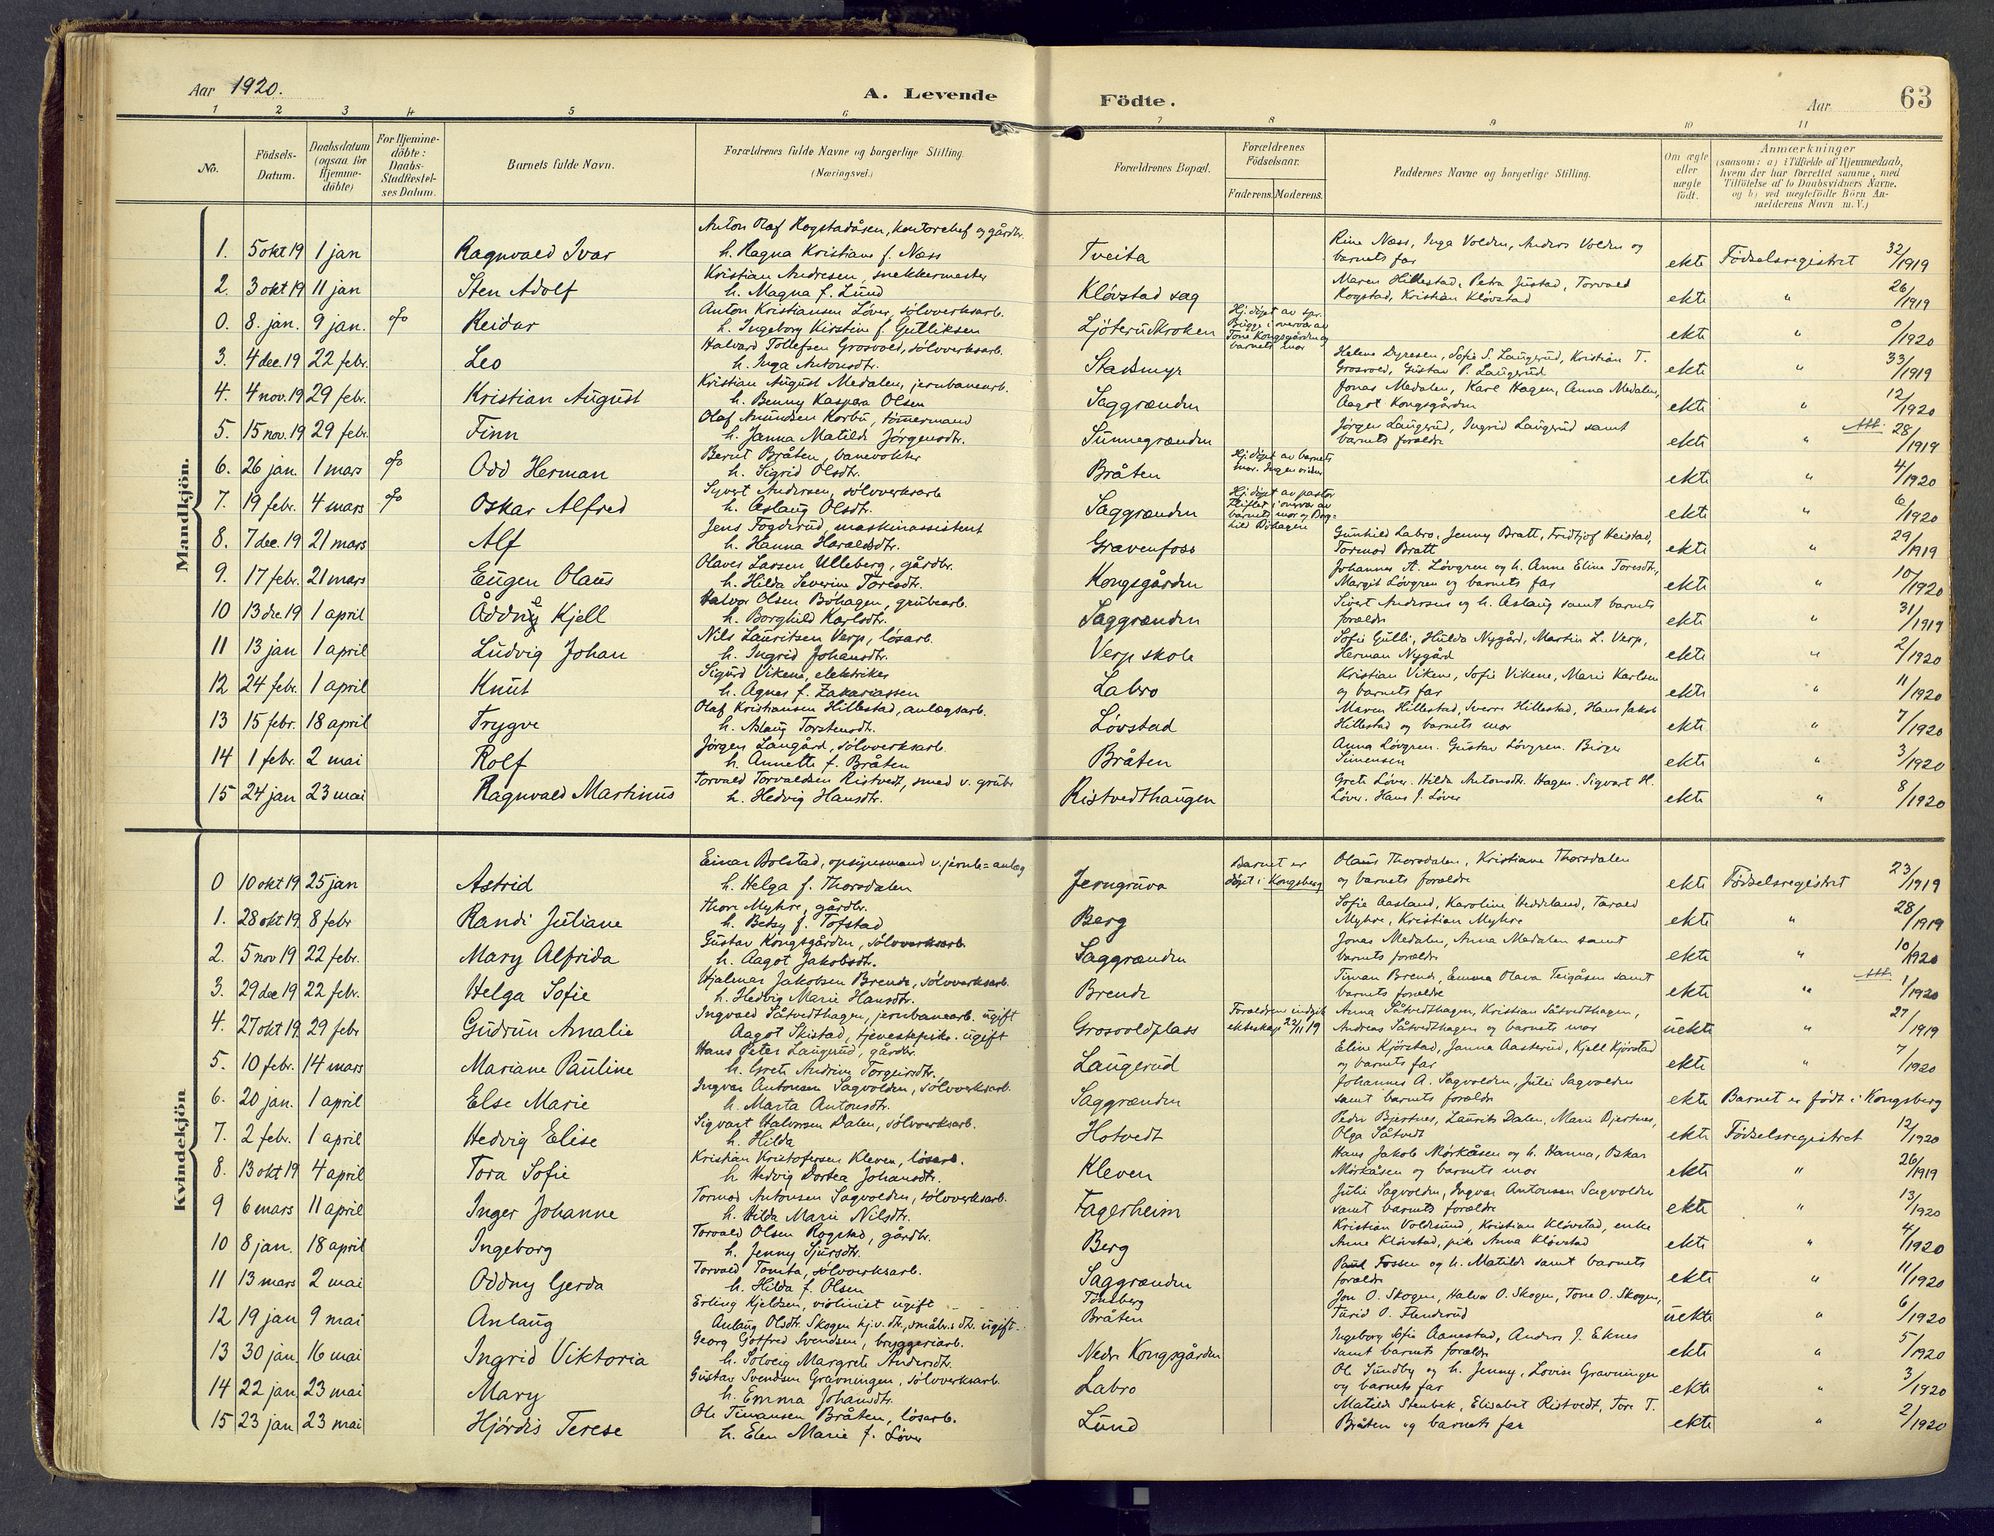 Aar 1920.
A. Levende Födte.
Aar 63
1 2 3 4 5 6 7 8 9 10 11
No.
Födsels-Datum.
Daabsdatum (ogsaa for Hjemmedöbte)
For Hjemmedöbte: Daabs-Stadfæstelses Datum.
Barnets fulde Navn.
Forældrenes fulde Navne og borgerlige Stilling. (Næringsvei.)
Forældrenes Bopæl.
Forældrenes Födselsaar.
Faderens. Moderens.
Faddernes Navne og borgerlige Stilling.
Om ægte eller uægte født.
Anmærkninger (saasom: a) i Tilfælde af Hjemmedaab, hvem der har forrettet samme, med Tilföielse af to Daabsvidners Navne, og b) ved uægtefödte Börn Anmelderens Navn m. V.)
Mandkjön.
1. 5 okt 19 1 jan Ragnvald Ivar Anton Olaf Rogstadåsen, kontorchef og gårdbr. h. Ragna Kristiane f. Næss Tveita Rine Næss, Inga Volden, Anders Volden og barnets far ekte Födselsregistret 32/1919
2. 3 okt 19 11 jan Sten Adolf Kristian Andresen, snekkermester h. Magna f. Lund Kløvstad sag Maren Hillestad, Petra Justad, Torvald Rogstad, Kristian Kløvstad ekte " 26/1919
0. 8. jan. 9 jan. o/o Reidar Anton Kristiansen Løver, sølvverksarb. h. Ingeborg Kirstine f. Gulliksen Ljøterudkroken Hj. døpt av spr. Bugge i overvær av Tone Kongsgården og barnets mor ekte " 0/1920
3. 4 dec. 19 22 febr. Leo Halvard Tollefsen Grosvold, sølvverksarb. h. Inga Antonsdtr. Stadsmyr Helene Dyresen, Sofie S. Laugerud, Kristian T. Grosvold, Gustav P. Laugerud ekte " 33/1919
4. 4 nov. 19 29 febr. Kristian August Kristian August Medalen, jernbanearb. h. Benny Kaspara Olsen Saggrænden Jonas Medalen, Karl Hagen, Anna Medalen, Aagot Kongsgården ekte " 12/1920
5. 15 nov. 19 29 febr. Finn Olaf Amundsen Korbu, tømmermand h. Janna Matilde Jørgensdtr. Sunnegrænden Jørgen Laugerud, Ingrid Laugerud samt barnets foræld­re ekte " Att. 28/1919
6. 26 jan. 1 mars o/o Odd Herman Bernt Bråten, banevokter h. Sigrid Olsdtr. Bråten Hj. døpt av barnets mor. Ingen vidner ekte " 4/1920
7. 19 febr. 4 mars o/o Oskar Alfred Syvert Andersen, sølvverksarb h. Aslaug Olsdtr. Saggrænden Hj. døpt av pastor i overvær av barnets mor og Borghild Bøhagen ekte " 6/1920
8. 7 dec. 19 21 mars Alf Jens Fogderud, maskinassistent h. Hanna Haraldsdtr. Gravenfoss Gunhild Labro, Jenny Bratt, Fridtjof Heistad, Tormod Bratt ekte " 29/1919
9. 17 febr. 21 mars Eugen Olaus Olaves Larsen Ulleberg, gårdbr. h. Hilda Severine Toresdtr. Kongsgården Johannes A. Løvgren og h. Anne Eline Toresdtr, Margit Løvgren og barnets far ekte " 10/1920
10 13 dec 19 1 april Kjell Halvor Olsen Bøhagen, grubearb. h. Borghild Karlsdtr. Saggrænden Sivert Andersen og h. Aslaug samt barnets forældre ekte " 31/1919
11 13 jan 1 april Ludvig Johan Nils Lauritsen Verp, løsarb. h. Ingrid Johansdtr. Verp skole Sofie Gulli, Hulda Nygård, Martin L. Verp, Herman Nygård ekte " 2/1920
12 24 febr. 1 april Knut Sigurd Vikene, elektriker h. Agnes f. Zakariassen Labro Kristian Vikene, Sofie Vikene, Marie Karlsen og barnets far ekte " 11/1920
13 15 febr. 18 april Trygve Olaf Kristiansen Hillestad, anlægsarb. h. Aslaug Torstensdtr. Løvstad Maren Hillestad, Sverre Hillestad, Hans Jakob Hillestad og barnets mor ekte " 7/1920
14 1 febr. 2 mai Rolf Jørgen Langård, sølvverksarb. h. Annette f. Bråten Bråten Anna Løvgren. Gustav Løvgren. Birger Simensen ekte " 3/1920
15 24 jan 23 mai Ragnvald Martinus Torvald Torvaldsen Ristvedt, smed v. grube h. Hedvig Hansdtr. Ristvedthaugen Grete Løver. Hilda Antonsdtr. Hagen. Sigvart H. Løver. Hans J. Løver ekte " 8/1920
Kvindekjön
0 10 okt 19 25 jan Astrid Einar Bolstad, opsynsmand v. jernb=anlæg h. Helga f. Thorsdalen Jerngruva Barnet er døpt i Kongsberg Olaus Thorsdalen, Kristiane Thorsdalen og barnets forældre ekte Födselsregistret 23/1919
1. 28 okt 19. 8 febr Randi Juliane Thore Myhre, gårdbr. h. Betsy f. Tofstad Berg Sofie Aasland, Karoline Hedderland, Tarald Myhre, Kristian Myhre ekte " 28/1919
2. 5 nov 19 22 febr. Mary Alfrida Gustav Kongsgården, sølvverksarb. h. Aagot Jakobsdtr. Saggrænden Jonas Medalen, Anna Medalen samt barnets forældre ekte " 10/1920
3. 29 dec 19 22 febr. Helga Sofie Hjalmar Jakobsen Brende, sølvverksarb. h. Hedvig Marie Hansdtr. Brende Timan Brende, Emma Olava Teigåsen samt barnets forældre ekte " Att. 1/1920
4. 27 okt 19. 29 febr Gudrun Amalie Ingvald Såtvedthagen, jernbanearb. ugift Aagot Skistad, tjenestepike. ugift Grosvoldplass Forældrene indgik ekteskap 22/11 19 Anna Såtvedthagen, Kristian Såtvedthagen, Andreas Såtvedthagen og barnets mor uekte " 27/1919
5. 10 febr. 14 mars Mariane Pauline Hans Peter Laugerud, gårdbr. h. Grete Andrine Torgersdtr. Laugerud Eline Kjørstad, Janna Aasterud, Kjell Kjørstad og barnets far ekte " 7/1920
6. 20 jan. 1 april Else Marie Ingvar Antonsen Sagvolden, sølvverksarb. h. Marta Antonsdtr. Saggrænden Johannes A. Sagvolden, Julie Sagvolden samt barnets forældre ekte Barnet er født i Kongsberg
7. 2 febr. 1 april Hedvig Elise Sigvart Halvorsen Dalen, sølvverksarb. h. Hilda Hotvedt Peder Bjertnes, Laurits Dalen, Marie Bjertnes, Olga Såtvedt ekte Födselsregistret 12/1920
8. 13 okt 19 4 april Tora Sofie Kristian Kristofersen Kleven, løsarb. h. Hedvig Dortea Johansdtr. Kleven Hans Jakob Mørkåsen og h. Hanna, Oskar Mørkåsen og barnets mor ekte " 26/1919
9 6 mars 11 april Inger Johanne Tormod Antonsen Sagvolden, sølvverksarb. h. Hilda Marie Nilsdtr. Fagerheim Julie Sagvolden, Ingvar Antonsen Sagvolden samt barnets forældre ekte " 13/1920
10 8 jan. 18 april Ingeborg Torvald Olsen Rogstad, gårdbr. h. Jenny Sjursdtr. Berg Kristian Voldsund, Kristian Kløvstad, enke Anne Kløvstad, pike Anna Kløvstad ekte " 4/1920
11 13 mars 2 mai Oddny Gerda Torvald Tomta, sølvverksarb. h. Hilda f. Olsen Saggrænden Paul Fossen og h. Matilde samt barnets forældre ekte " 11/1920
12 19 jan 9 mai Anlaug Erling Kjeldsen, violinist ugift Anlaug Olsdtr. Skogen hj.v. dtr, småbr.s dtr. ugift. Tønsberg Bråten Jon O. Skogen, Halvor O. Skogen, Tone O. Skogen, Turid O. Flendrud uekte " 6/1920
13 30 jan. 16 mai Ingrid Viktoria Georg Gotfred Svendsen, bryggeriarb. h. Solveig Margrete Andersdtr. Nedre Kongsgården Ingeborg Sofie Aanestad, Anders J. Eknes samt barnets forældre ekte " 5/1920
14 22 jan. 23 mai Mary Gustav Svendsen Gravningen, sølvverksarb h. Emma Johansdtr. Labro Ole Sundby og h. Jenny, Lovise Gravningen og barnets far ekte " 3/1920
15 23 jan 23 mai Hjørdis Terese Ole Timansen Bråten, løsarb. h. Elen Marie f. Løver Lund Matilde Stenbek, Elisabet Ristvedt, Tore T. Bråten og barnets far ekte " 2/1920